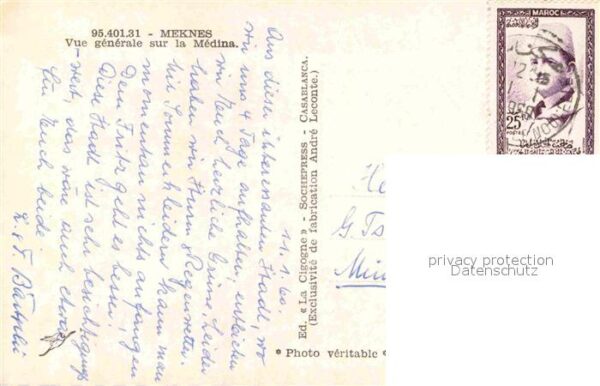 95.401.31 - MEKNES
Vue générale sur la Médina.
11.1.60
Aus dieser interessanten Stadt, wo
wir uns 4 Tage aufhalten, entbieten
wir Euch herzliche Grüsse. Leider
haben wir Sturm & Regenwetter.
Mit Sommerkleidern kann man
momentan nichts anfangen.
Dem Fritz geht es besser.
Die Stadt ist sehr besichtigungs-
wert, das wäre auch etwas
für Euch beide.
Ed. « La Cigogne » - SOCHEPRESS - CASABLANCA.
(Exclusivité de fabrication André Leconte.)
* Photo véritable *
MAROC
25F
POSTES
He
G. Ts
privacy protection
Datenschutz